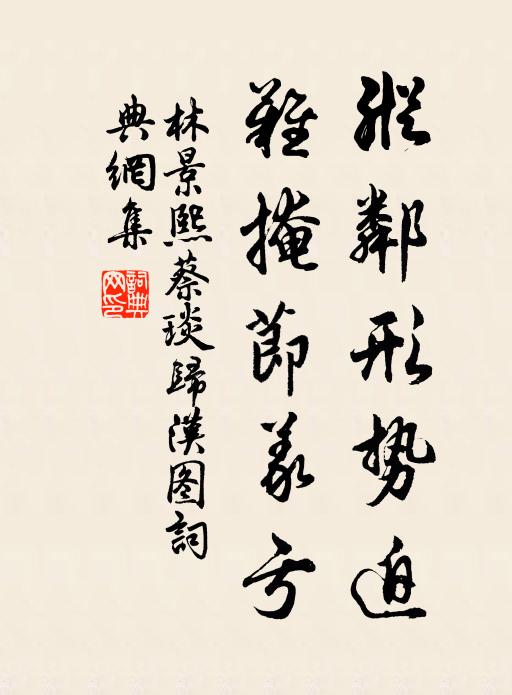 縱鄰形势迫
難掩節義亏
林景熙蔡琰歸漢图詞
典網集
詞典网印